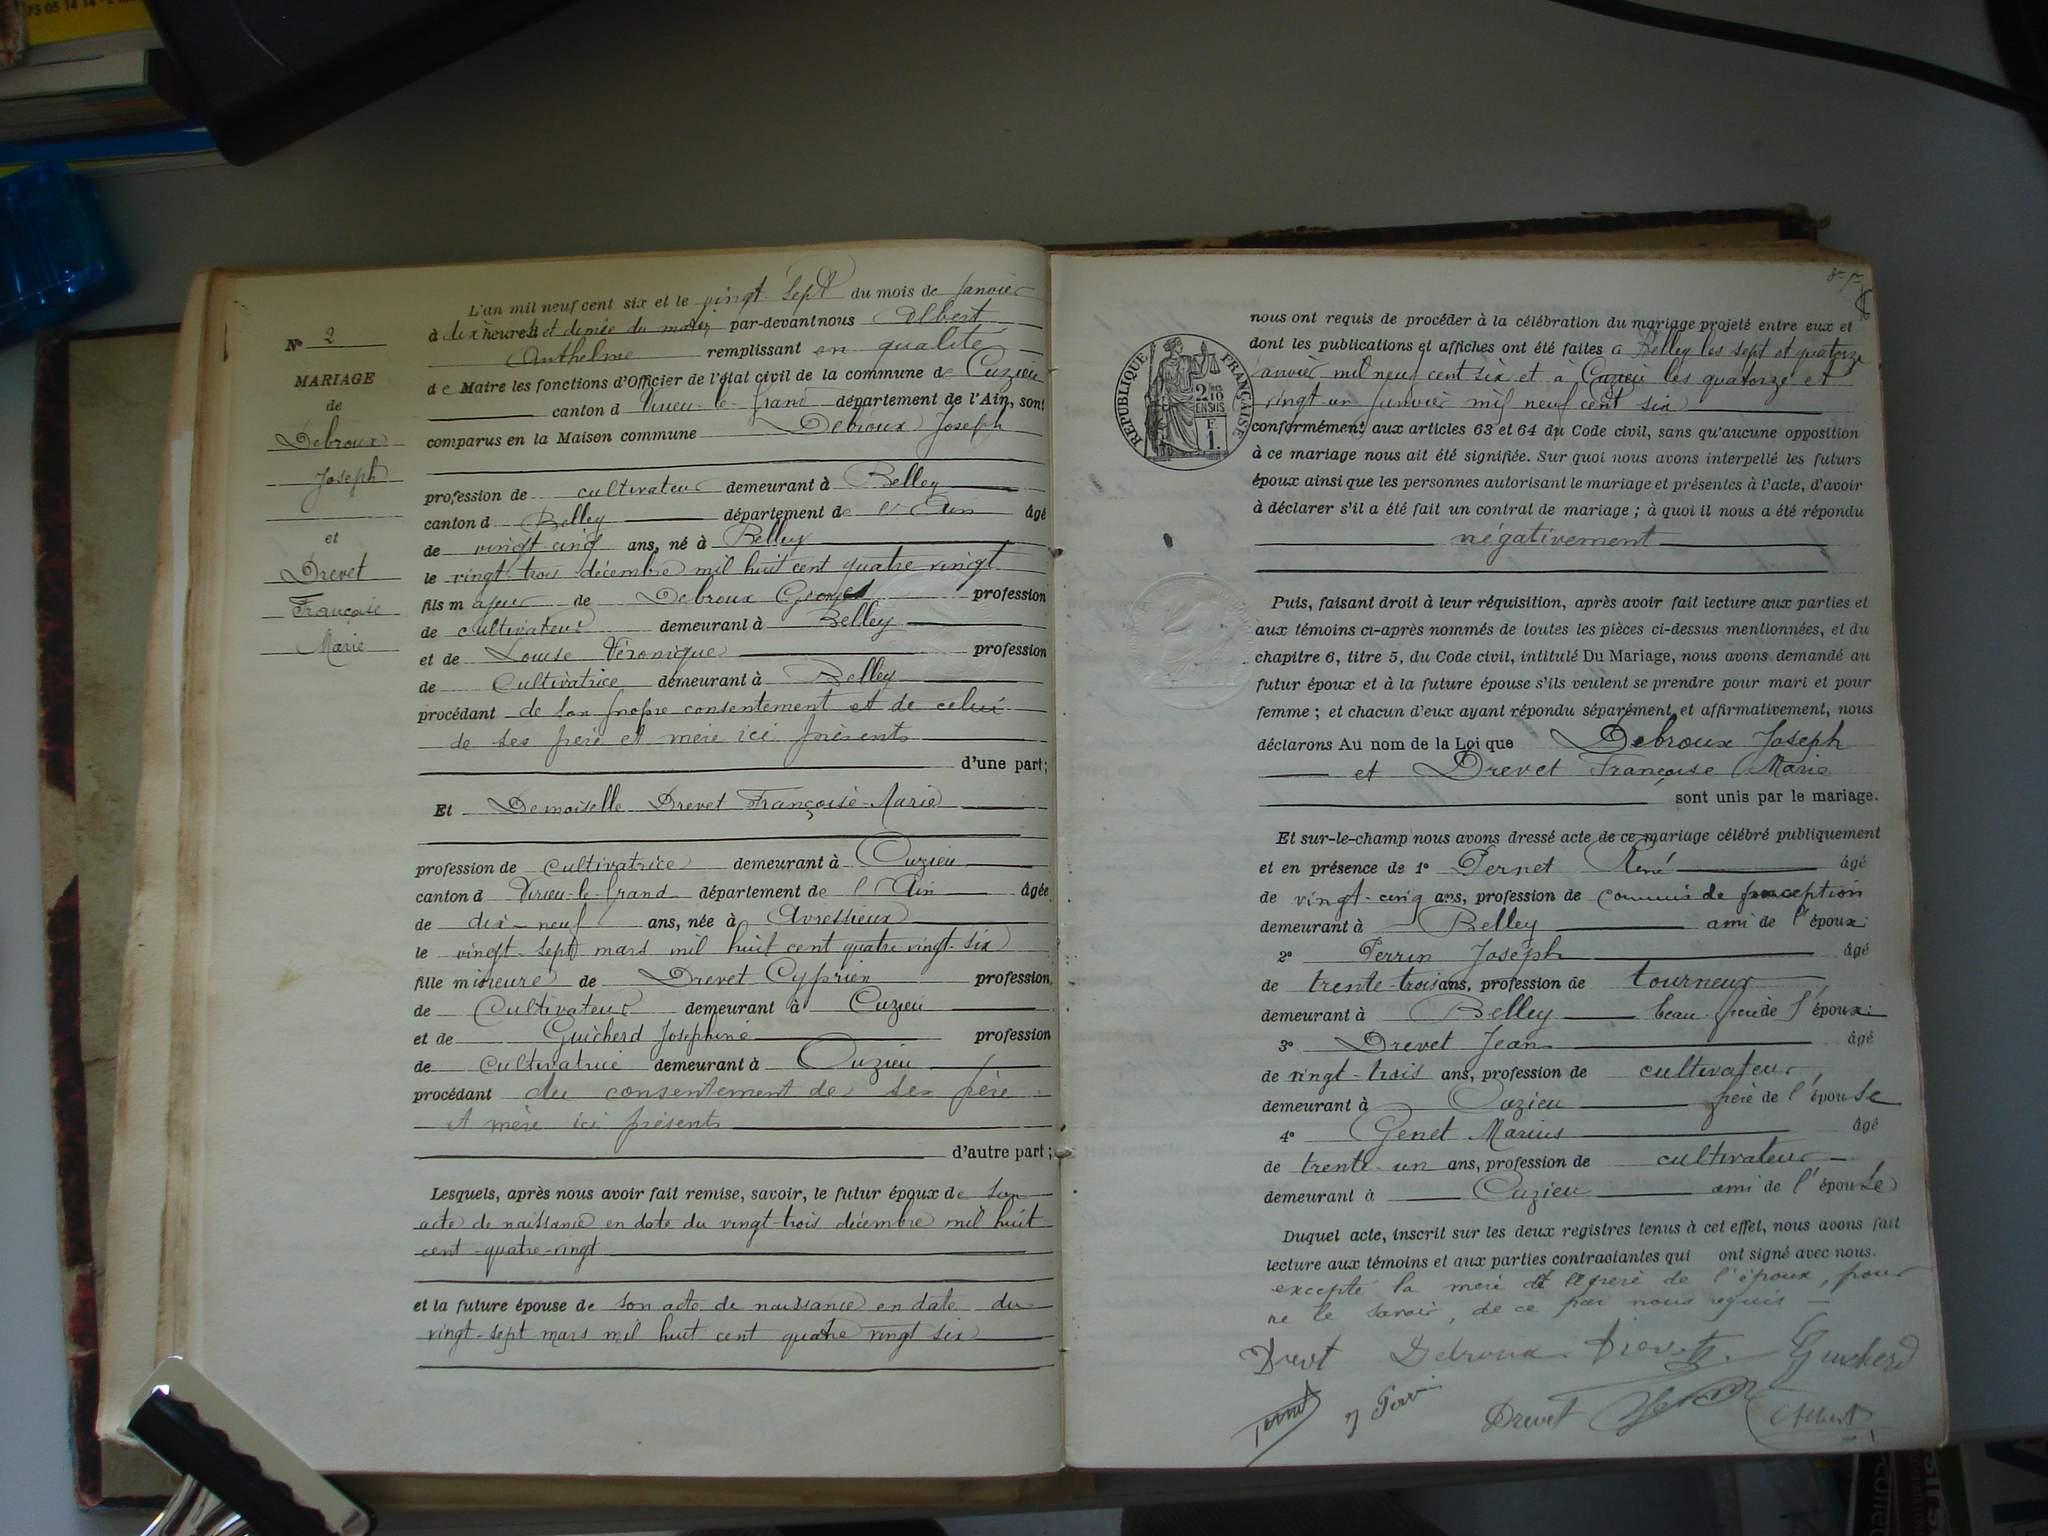 75 05 14 14
N° 2
MARIAGE
de
Debroux
Joseph
et
Drevet
Françoise
Marie
L'an mil neuf cent six et le vingt sept du mois de Janvier
à dix heures et demie du matin par-devant nous Albert
Anthelme remplissant en qualité
de Maire les fonctions d'Officier de l'état civil de la commune de Cuzieu
canton d Virieu-le-Grand département de l'Ain, sont
comparus en la Maison commune Debroux Joseph
profession de cultivateur demeurant à Belley
canton d Belley département de l'Ain âgé
de vingt-cinq ans, né à Belley
le vingt-trois décembre mil huit cent quatre vingt
fils majeur de Debroux Georges profession
de cultivateur demeurant à Belley
et de Louise Véronique profession
de Cultivatrice demeurant à Belley
procédant de son propre consentement et de celui
de ses père et mère ici présents
d'une part;
Et Demoiselle Drevet Françoise-Marie
profession de cultivatrice demeurant à Cuzieu
canton d Virieu-le-Grand département de l'Ain âgée
de dix-neuf ans, née à Avressieux
le vingt-sept mars mil huit cent quatre-vingt-six
fille mineure de Drevet Cyprien profession
de Cultivateur demeurant à Cuzieu
et de Guicherd Joséphine profession
de Cultivatrice demeurant à Cuzieu
procédant du consentement de ses père
et mère ici présents
d'autre part;
Lesquels, après nous avoir fait remise, savoir, le futur époux de son
acte de naissance en date du vingt-trois décembre mil huit
cent-quatre-vingt
et la future épouse de son acte de naissance en date du
vingt-sept mars mil huit cent quatre vingt six
RÉPUBLIQUE FRANÇAISE
nous ont requis de procéder à la célébration du mariage projeté entre eux et
dont les publications et affiches ont été faites à Belley les sept et quatorze
janvier mil neuf cent six et à Cuzieu les quatorze et
vingt-un Janvier mil neuf cent six
conformément aux articles 63 et 64 du Code civil, sans qu'aucune opposition
à ce mariage nous ait été signifiée. Sur quoi nous avons interpellé les futurs
époux ainsi que les personnes autorisant le mariage et présentes à l'acte, d'avoir
à déclarer s'il a été fait un contrat de mariage; à quoi il nous a été répondu
négativement
Puis, faisant droit à leur réquisition, après avoir fait lecture aux parties et
aux témoins ci-après nommés de toutes les pièces ci-dessus mentionnées, et du
chapitre 6, titre 5, du Code civil, intitulé Du Mariage, nous avons demandé au
futur époux et à la future épouse s'ils veulent se prendre pour mari et pour
femme; et chacun d'eux ayant répondu séparément et affirmativement, nous
déclarons Au nom de la Loi que Debroux Joseph
et Drevet Françoise Marie
sont unis par le mariage.
Et sur-le-champ nous avons dressé acte de ce mariage célébré publiquement
et en présence de 1° Pernet René âgé
de vingt-cinq ans, profession de commis de perception
demeurant à Belley ami de l'époux
2° Perrin Joseph âgé
de trente-trois ans, profession de tourneur
demeurant à Belley beau-frère de l'époux
3° Drevet Jean âgé
de vingt-trois ans, profession de cultivateur
demeurant à Cuzieu frère de l'épouse
4° Genet Marius âgé
de trente-un ans, profession de cultivateur
demeurant à Cuzieu ami de l'épouse
Duquel acte, inscrit sur les deux registres tenus à cet effet, nous avons fait
lecture aux témoins et aux parties contractantes qui ont signé avec nous.
excepté la mère et le père de l'époux, pour
ne le savoir, de ce par nous requis
Drevet Debroux Drevet Guicherd
Pernet J Perrin Drevet Albert